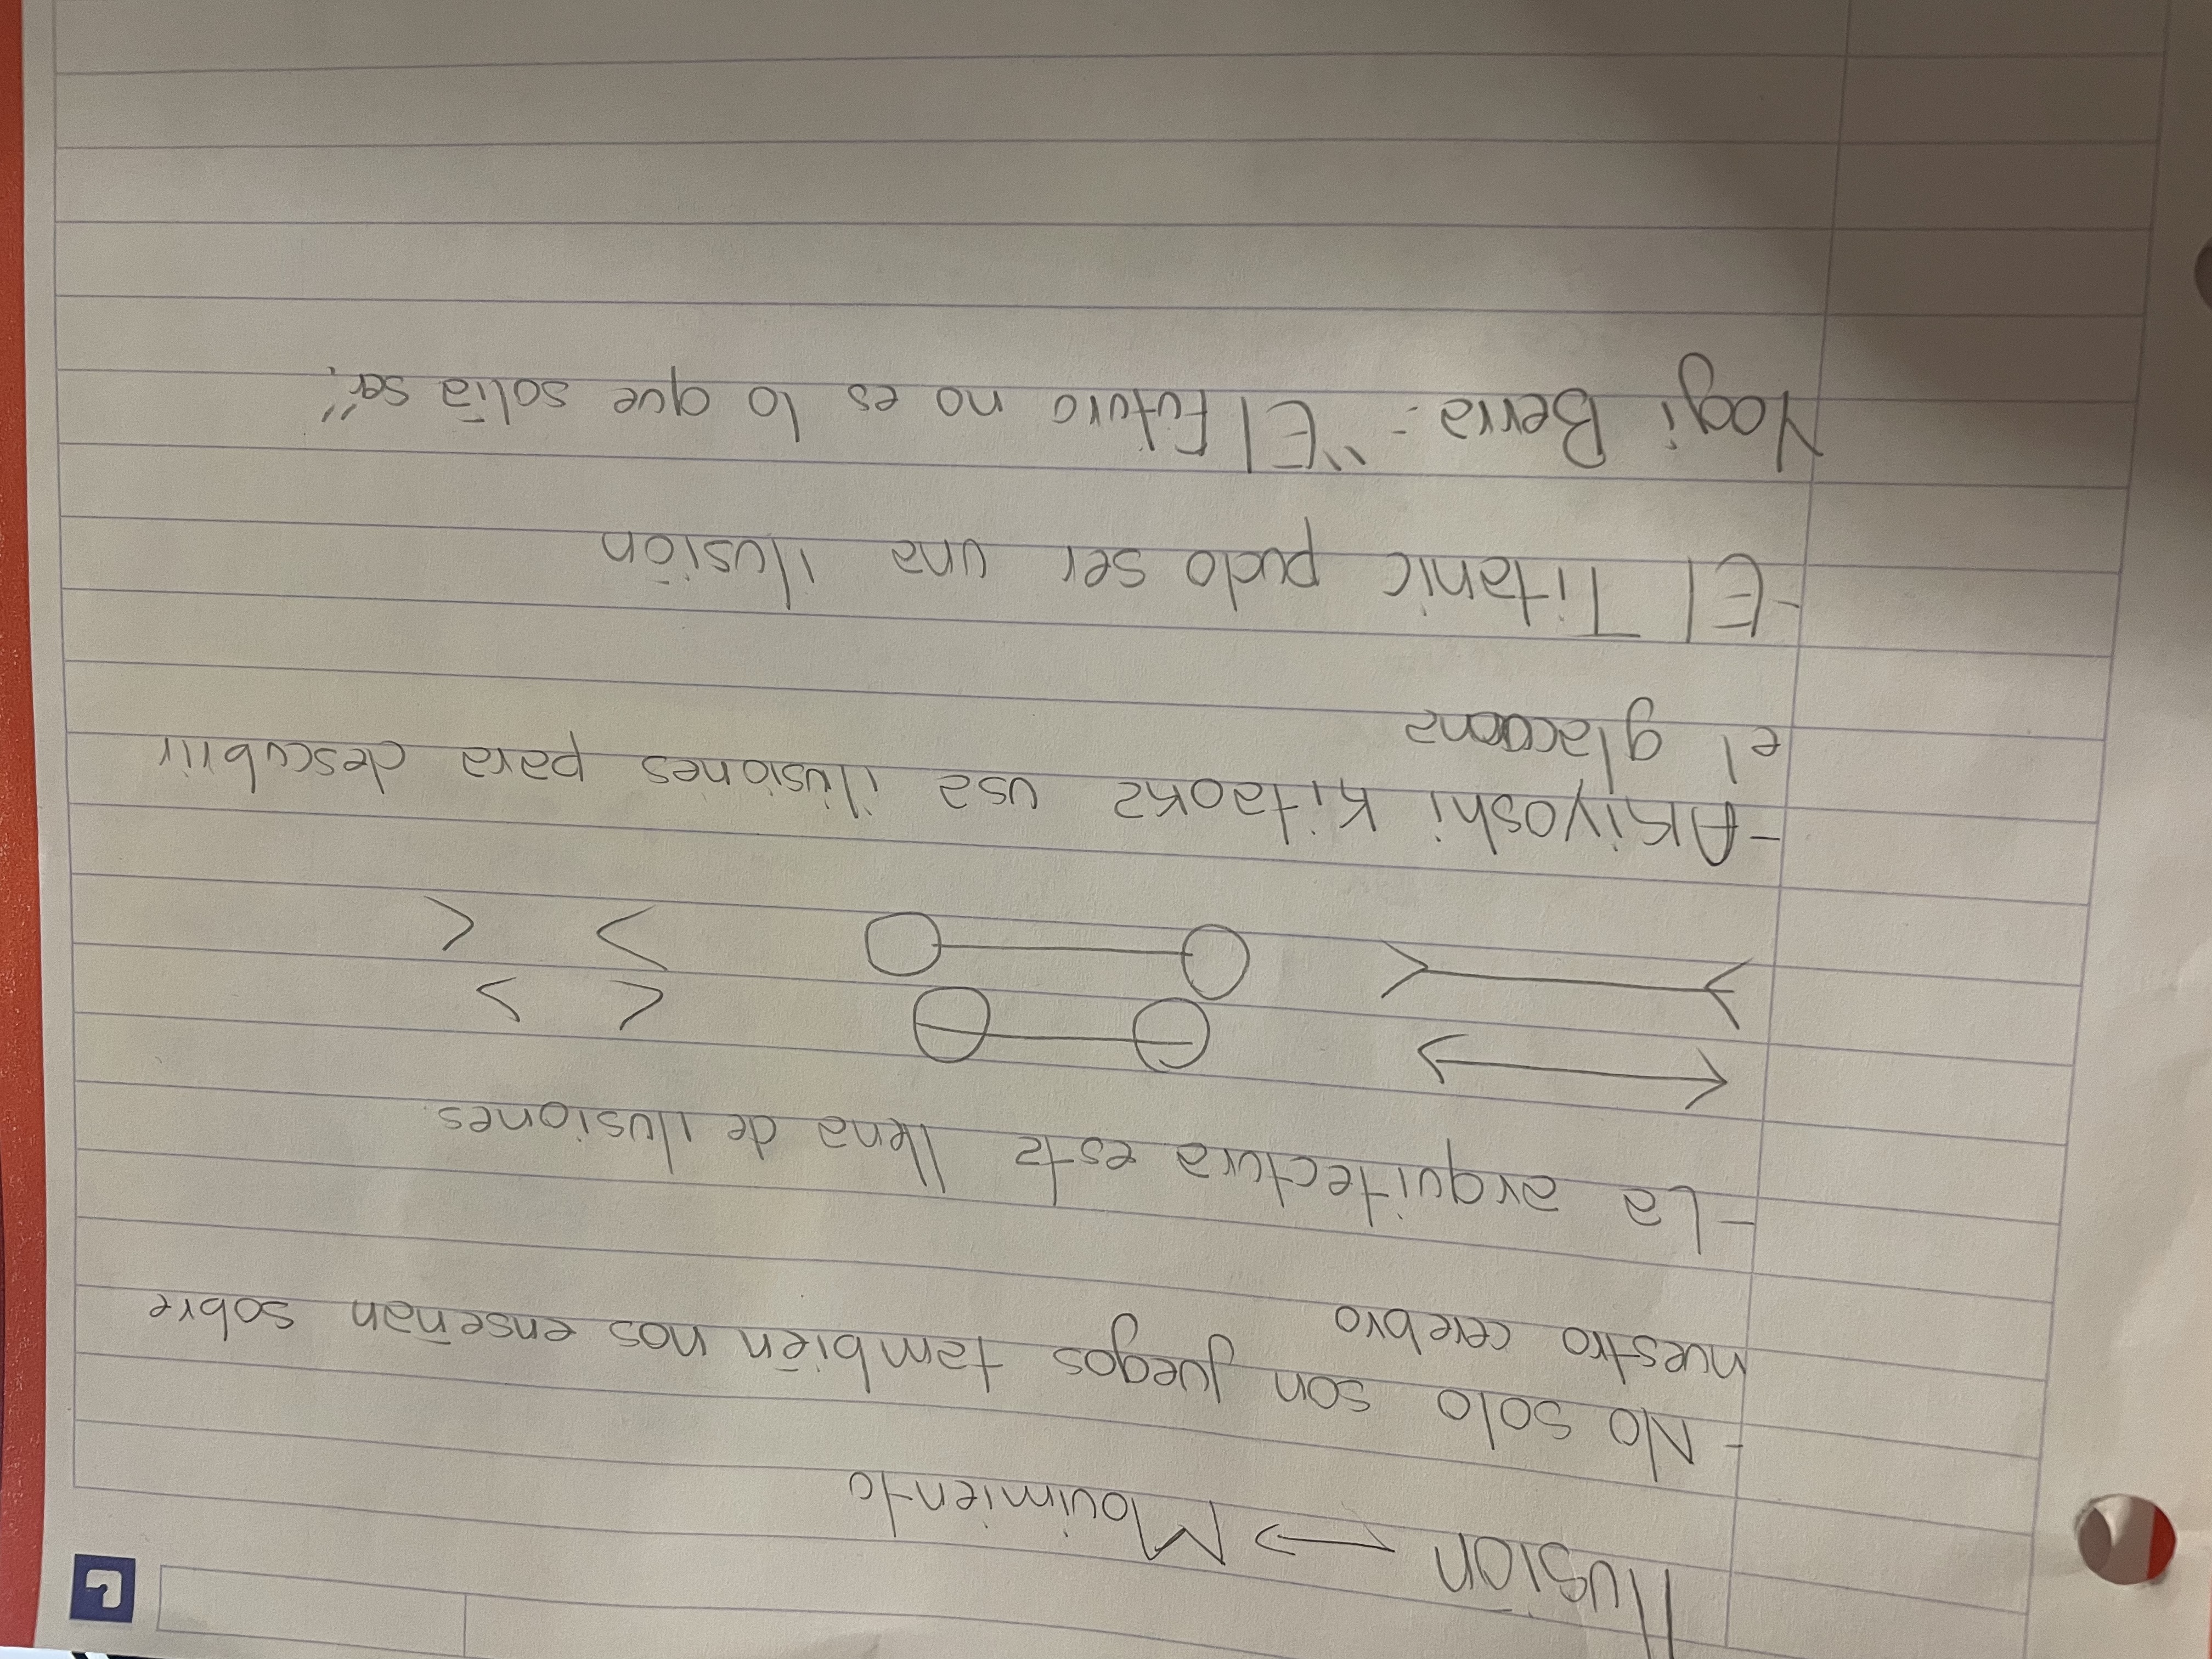 Ilusión → Movimiento
- No solo son juegos también nos enseñan sobre
nuestro cerebro
- La arquitectura esta llena de ilusiones
- Akiyoshi Kitaoka usa ilusiones para descubrir
el
- El Titanic pudo ser una ilusión
Yogi Berra: "El futuro no es lo que solía ser".